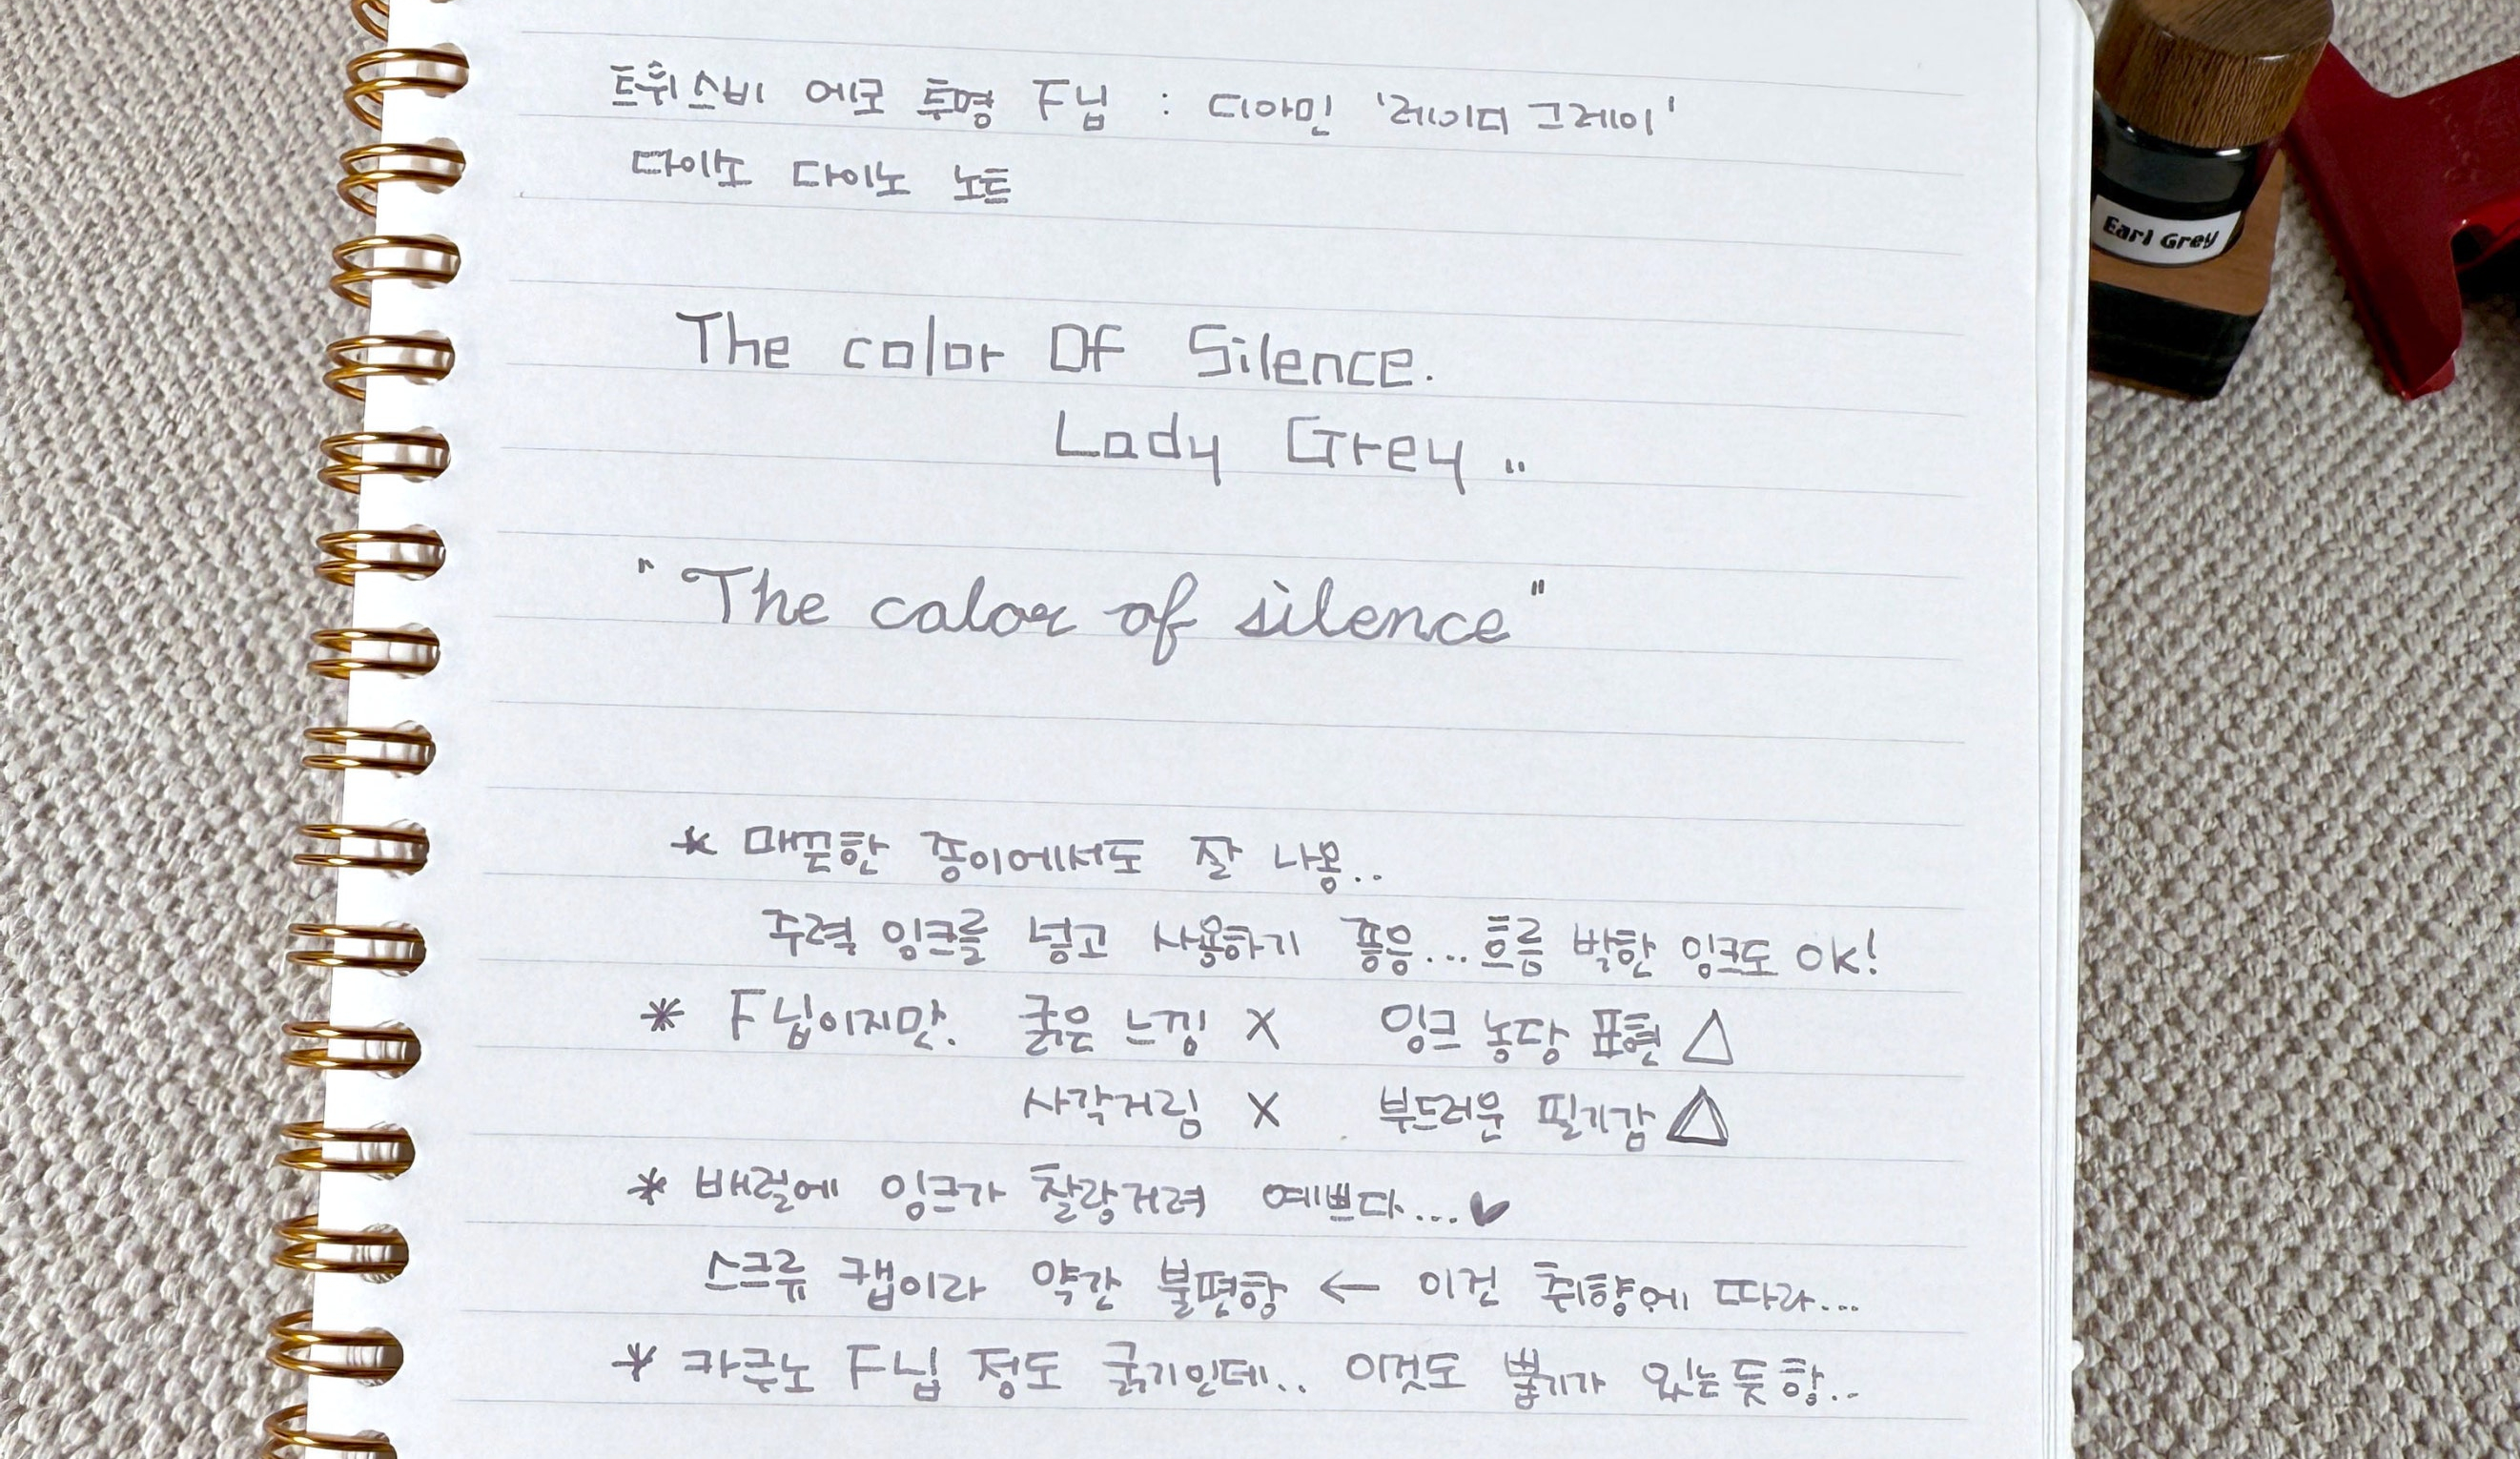 트위스비 에코 투명 F닙 : 디아민 '레이디 그레이'
다이소 다이노 노트
Earl Grey
The color Of Silence.
Lady Grey ..
"The color of silence"
* 매끈한 종이에서도 잘 나옹..
주력 잉크를 넣고 사용하기 좋음... 흐름 박한 잉크도 OK!
* F닙이지만. 굵은 느낌 X 잉크 농담 표현 △
사각거림 X 부드러운 필기감 △
* 배럴에 잉크가 찰랑거려 예쁘다...♥
스크류 캡이라 약간 불편함 ← 이건 취향에 따라...
* 카쿠노 F닙 정도 굵기인데.. 이것도 뽑기가 있는듯 함..